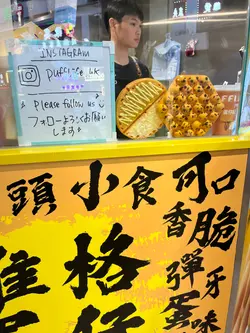 INSTAGRAM
Please follow us
フォローよろしくお願い
します
頭 小食
可口
香脆
彈牙
蛋味
格仔